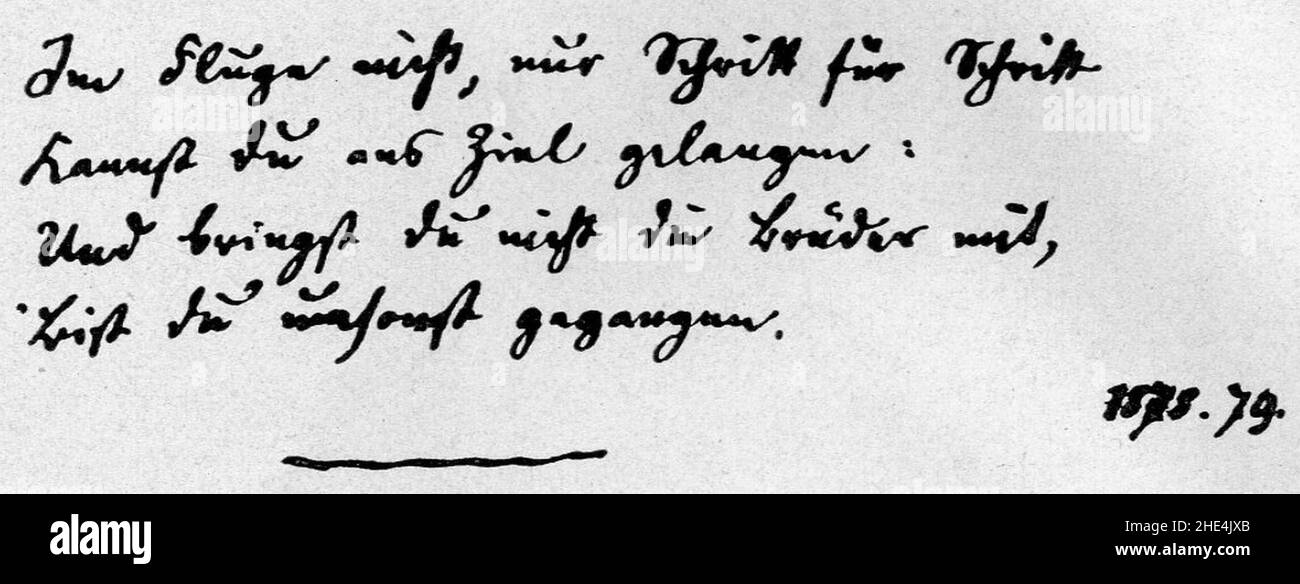 Im Fluge nicht, nur Schritt für Schritt
Kannst du ans Ziel gelangen:
Und bringst du nicht die Brüder mit,
Bist du umsonst gegangen.
1878.79.
alamy
Image ID: 2HE4JXB
www.alamy.com